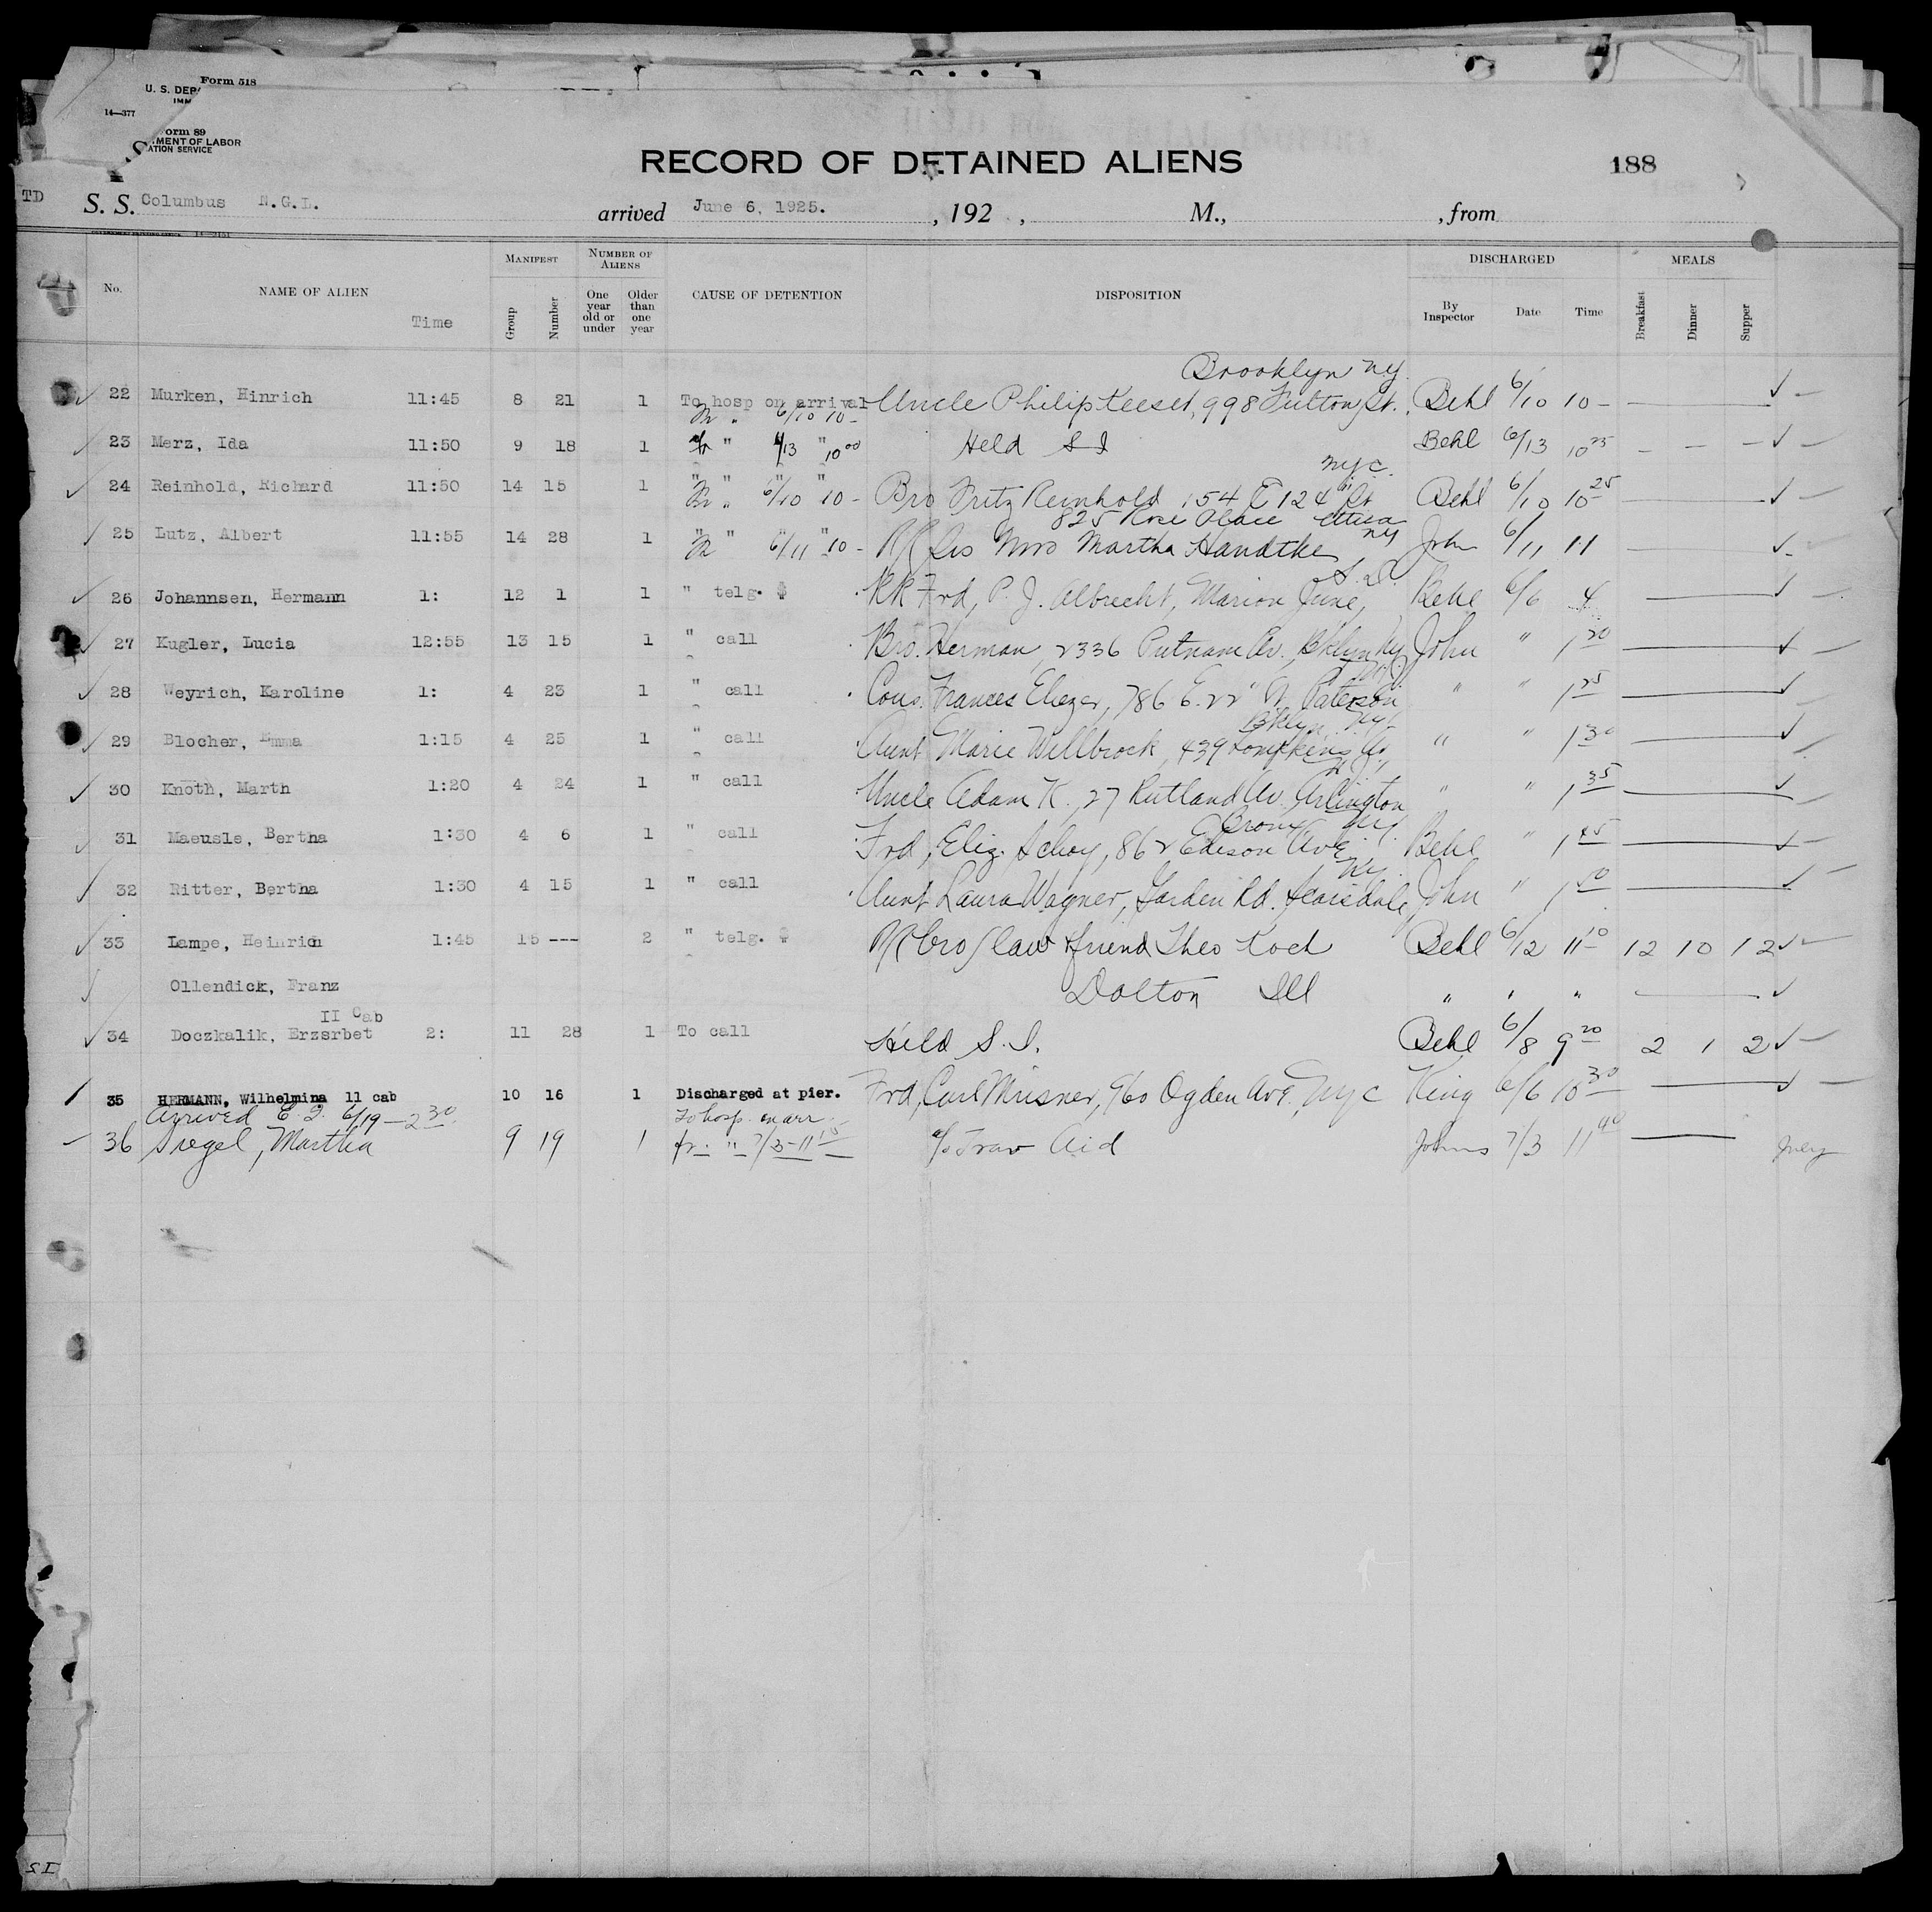 Form 518
U. S. DEP
IMM
14—377
orm 89
MENT OF LABOR
ATION SERVICE
RECORD OF DETAINED ALIENS
188
TD
S. S. Columbus N.G.L. arrived June 6, 1925. , 192 , M., , from
No. NAME OF ALIEN Time MANIFEST Group Number NUMBER OF ALIENS One year old or under Older than one year CAUSE OF DETENTION DISPOSITION DISCHARGED By Inspector Date Time MEALS Breakfast Dinner Supper
Brooklyn N.Y.
22 Murken, Hinrich 11:45 8 21 1 To hosp on arrival Uncle Philip Keeset, 998 Fulton St. Behl 6/10 10 —
Fr " 6/10 10 —
23 Merz, Ida 11:50 9 18 1 fr " 6/13 " 10 00 Held S I Behl 6/13 10 25 — — —
NYC.
24 Reinhold, Richard 11:50 14 15 1 " " " Bro Fritz Reinhold 154 E 124" St Behl 6/10 10 25
Fr " 6/10 10 —
825 Rose Place Utica NY
25 Lutz, Albert 11:55 14 28 1 " " " RR Sis Mrs Martha Handtke John 6/11 11
Fr 6/11 10 —
S. D.
26 Johannsen, Hermann 1: 12 1 1 " telg. $ RR Frd, P. J. Albrecht, Marion June, Behl 6/6 4
27 Kugler, Lucia 12:55 13 15 1 " call Bro. Herman, 2336 Putnam Av., Bklyn Ny John " 1 20
N.J.
28 Weyrich, Karoline 1: 4 23 1 " call Cous. Frances Eliezer, 786 E. 22" St. Paterson " " 1 25
Bklyn, Ny.
29 Blocher, Emma 1:15 4 25 1 " call Aunt Marie Willbrock, 439 Tompkins Av., " " 1 30
N.J.,
30 Knoth, Marth 1:20 4 24 1 " call Uncle Adam K., 27 Rutland Av. Arlington " " 1 35
Bronx Ny.
31 Maeusle, Bertha 1:30 4 6 1 " call Frd, Eliz. Schoy, 862 Edison Ave Behl " 1 45
Ny.
32 Ritter, Bertha 1:30 4 15 1 " call Aunt Laura Wagner, Garden Rd. Scarsdale, John " 1 50
33 Lampe, Heinrich 1:45 15 --- 2 " telg. $ RR bro/law & friend Theo Koch Behl 6/12 11 10 12 10 12
Ollendick, Franz Dolton Ill " " "
II Cab
34 Doczkalik, Erzsrbet 2: 11 28 1 To call Held S. I. Behl 6/8 9 20 2 1 2
35 HERMANN, Wilhelmina 11 cab 10 16 1 Discharged at pier. Frd, Carl Missner, 960 Ogden Ave., NYC King 6/6 10 30
Arrived E. I. 6/19 — 2 30 To hosp. on arr
36 Siegel, Martha 9 19 1 fr. " 7/3 — 11 15 c/o Trav Aid Johns 7/3 11 40 July
SI